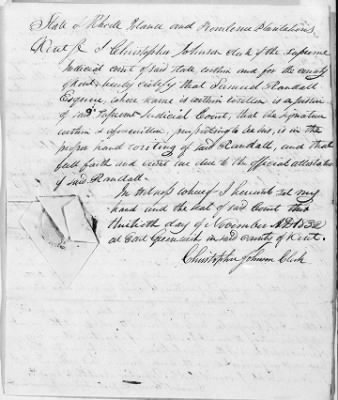 State of Rhode Island and Providence Plantations
Kent Sc I Christopher Johnson clerk of the Supreme
Judicial court of said state within and for the county
of Kent hereby certify that Samuel Randall
Esquire, whose name is within written is a
of said Supreme Judicial Court, that the signature
within & aforewritten, purporting to be his, is in the
proper hand writing of said Randall, and that
full faith and credit are due to the official attestation
of said Randall.
In witness whereof I hereunto set my
hand and the seal of said Court this
thirtieth day of November AD 1832
at East Greenwich in said county of Kent.
Christopher Johnson Clerk